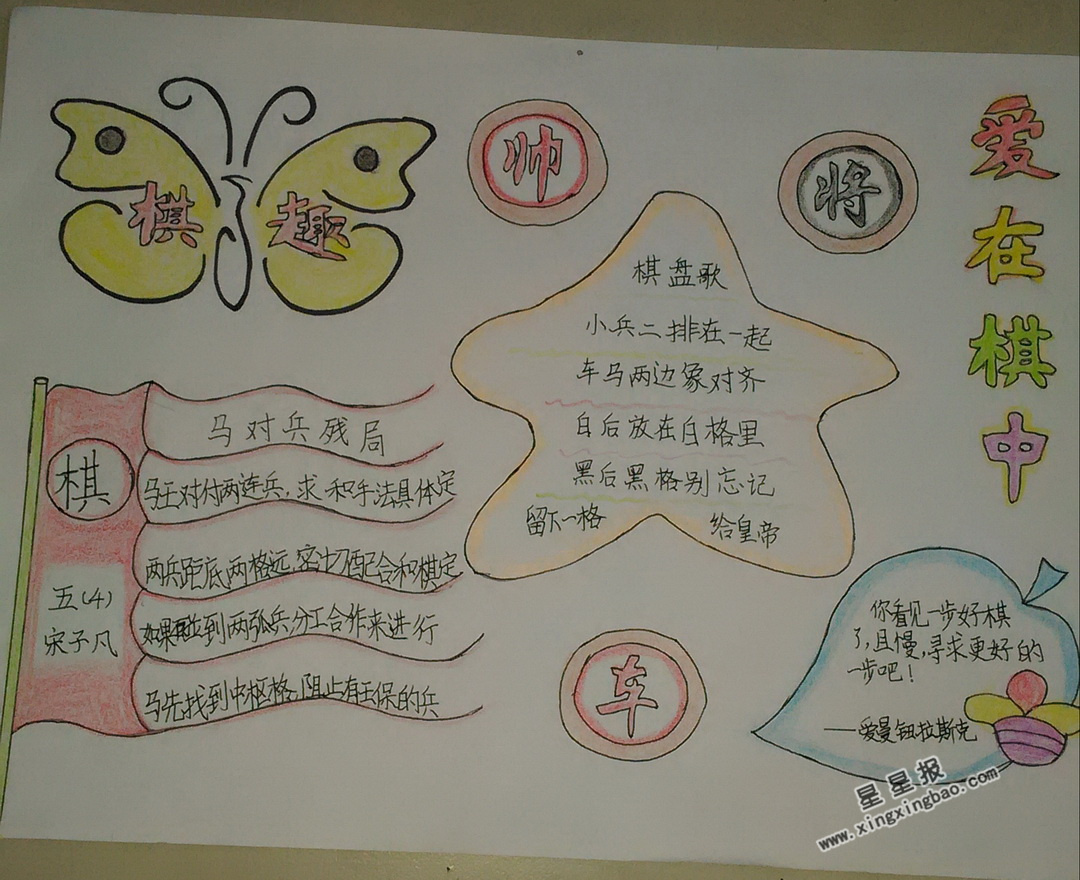 棋趣
帅
将
爱在棋中
棋盘歌
小兵二排在一起
车马两边象对齐
白后放在白格里
黑后黑格别忘记
留下一格 给皇帝
棋
五(4)
宋子凡
马对兵残局
马王对付两连兵,求和手法具体定
两兵距底两格远,密切配合和棋定
如果再遇到两孤兵,分工合作来进行
马先找到中枢格,阻止有王保的兵
车
你看见一步好棋
了,且慢,寻求更好的
一步吧!
——爱曼钮拉斯克
星星报
www.xingxingbao.com